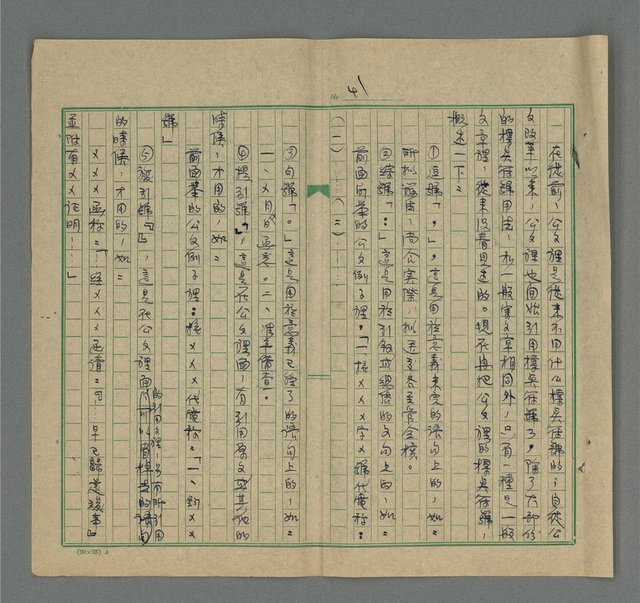 No 41
在從前，公文裡是從來不用什么標點符號的；自從公
文改革以來，公文裡也開始引用標點符號了。除了大部份
的標點符號用法，和一般寫文章相同外，只有一種是一般
文章裡，從來沒看見過的。現在且把公文裡的標點符號，
概述一下：
①逗號「，」，這是用於意義未完的語句上的，如：
所擬辦法，尚合實際，擬送各主管全核。
②綜號「：」這是用於引敘或總結的文句上的，如：
前面所舉的公文例子裡。「一、接×××字×號代電称：
（一）……（二）……
③句號「。」這是用於意義已完了的語句上的，如：
一、×月×日函悉。二、准予備查。
④提引號「」，這是在公文裡面，有引用原文或其他的
時候，才用的，如：
前面舉的公文例子裡：接×××代電称：「一、鈞××
號」
⑤複引號『』，這是在公文裡面
的引用文裡，另有所引用
的時候，才用的，如：
×××函称：「一、經×××函請：『一、早已歸還接書』
並附有××証明……」
(20×25) A